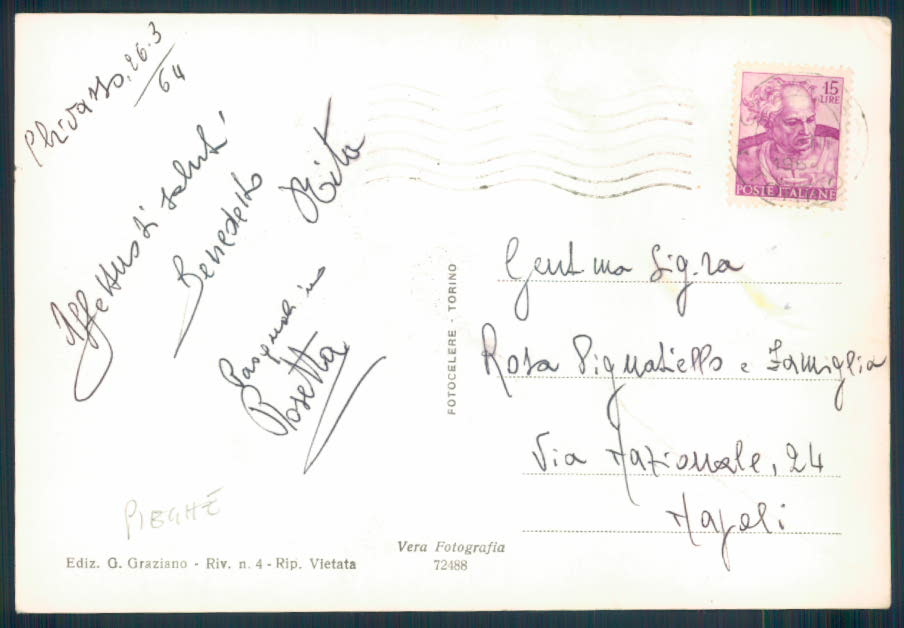 Chivasso, 26.3
64
Affettuosi saluti
Benedetto
Rita
Pasqualino
Rosetta
15
LIRE
POSTE ITALIANE
Gent.ma Sig.ra
Rosa Pignatiello e Famiglia
Via Nazionale, 24
Napoli
FOTOCELERE - TORINO
PIEGHE
Vera Fotografia
72488
Ediz. G. Graziano - Riv. n. 4 - Rip. Vietata